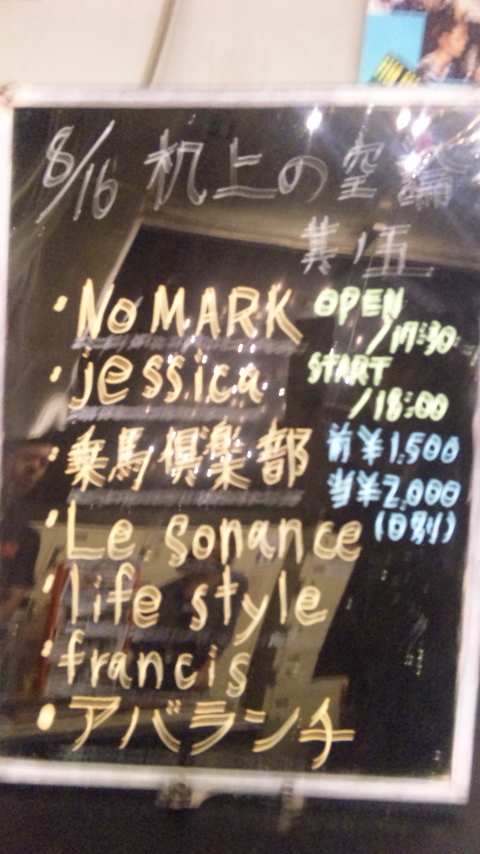 8/16 机上の空論
其ノ五
・No MARK
OPEN
/17:30
・jessica
START
/18:00
・乗馬倶楽部
前¥1,500
当¥2,000
(D別)
・Le sonance
・life style
・francis
・アバランチ